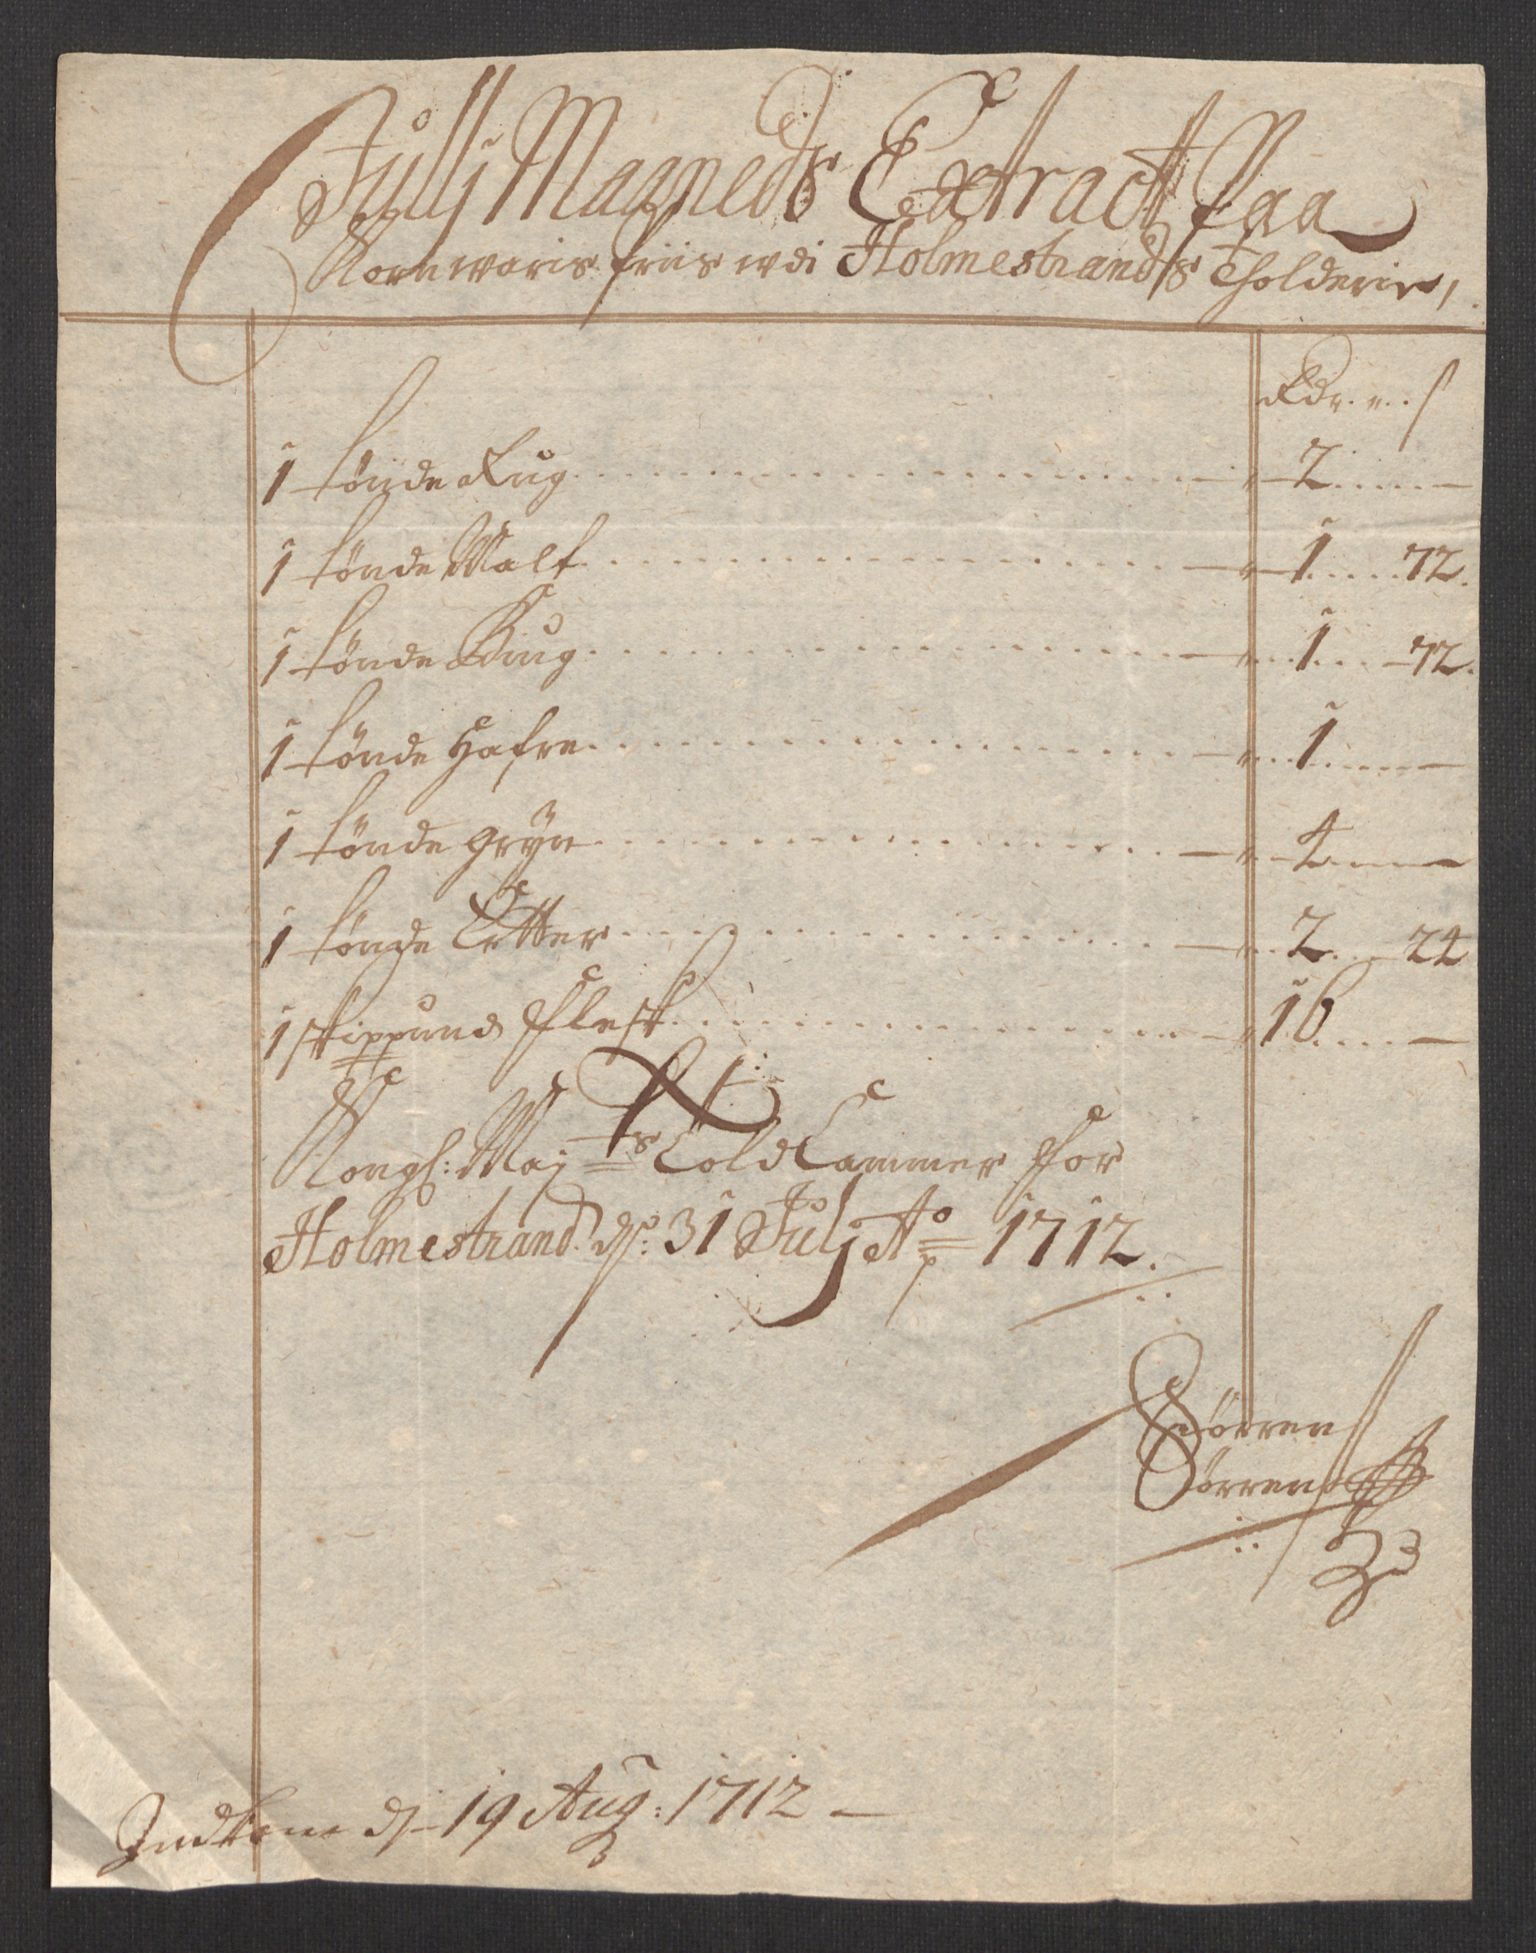 Julij Maaneds Extract Paa
Kornwaris friis wdi Holmestrands Tholderie,
Rdr. s
1 tønde Rug 2
1 tønde Malt 1 72.
1 tønde Biug 1 72.
1 tønde Hafre 1
1 tønde gryn 4
1 tønde Ertter 2 24
1 skippund Flesk 16
Kongl: Maj ts Told Cammer for
Holmestrand. d: 31 Julj Ao 1712.
Sørren
Sørrens
Indkom d 19 Aug: 1712